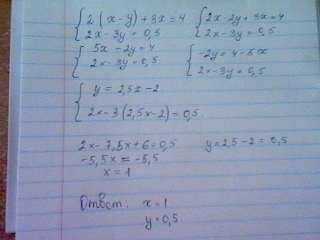 { 2(x-y)+3x=4 { 2x-2y+3x=4
2x-3y=0,5 2x-3y=0,5
{ 5x-2y=4 { -2y=4-5x
2x-3y=0,5 2x-3y=0,5
{ y=2,5x-2
2x-3(2,5x-2)=0,5
2x-7,5x+6=0,5 y=2,5-2=0,5
-5,5x=-5,5
x=1
Ответ: x=1
y=0,5